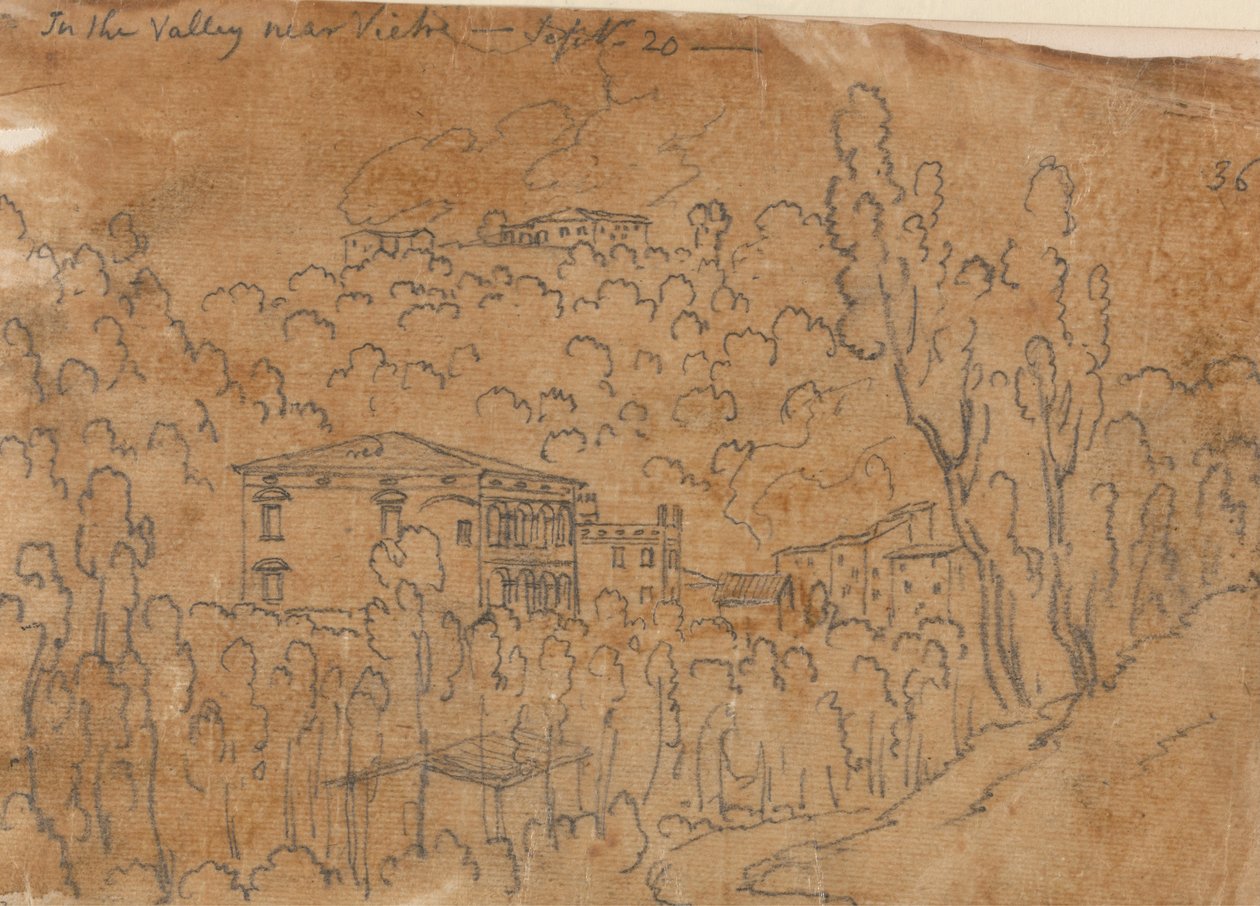 In the Valley near Vietri — Septr. 20 —
36
red